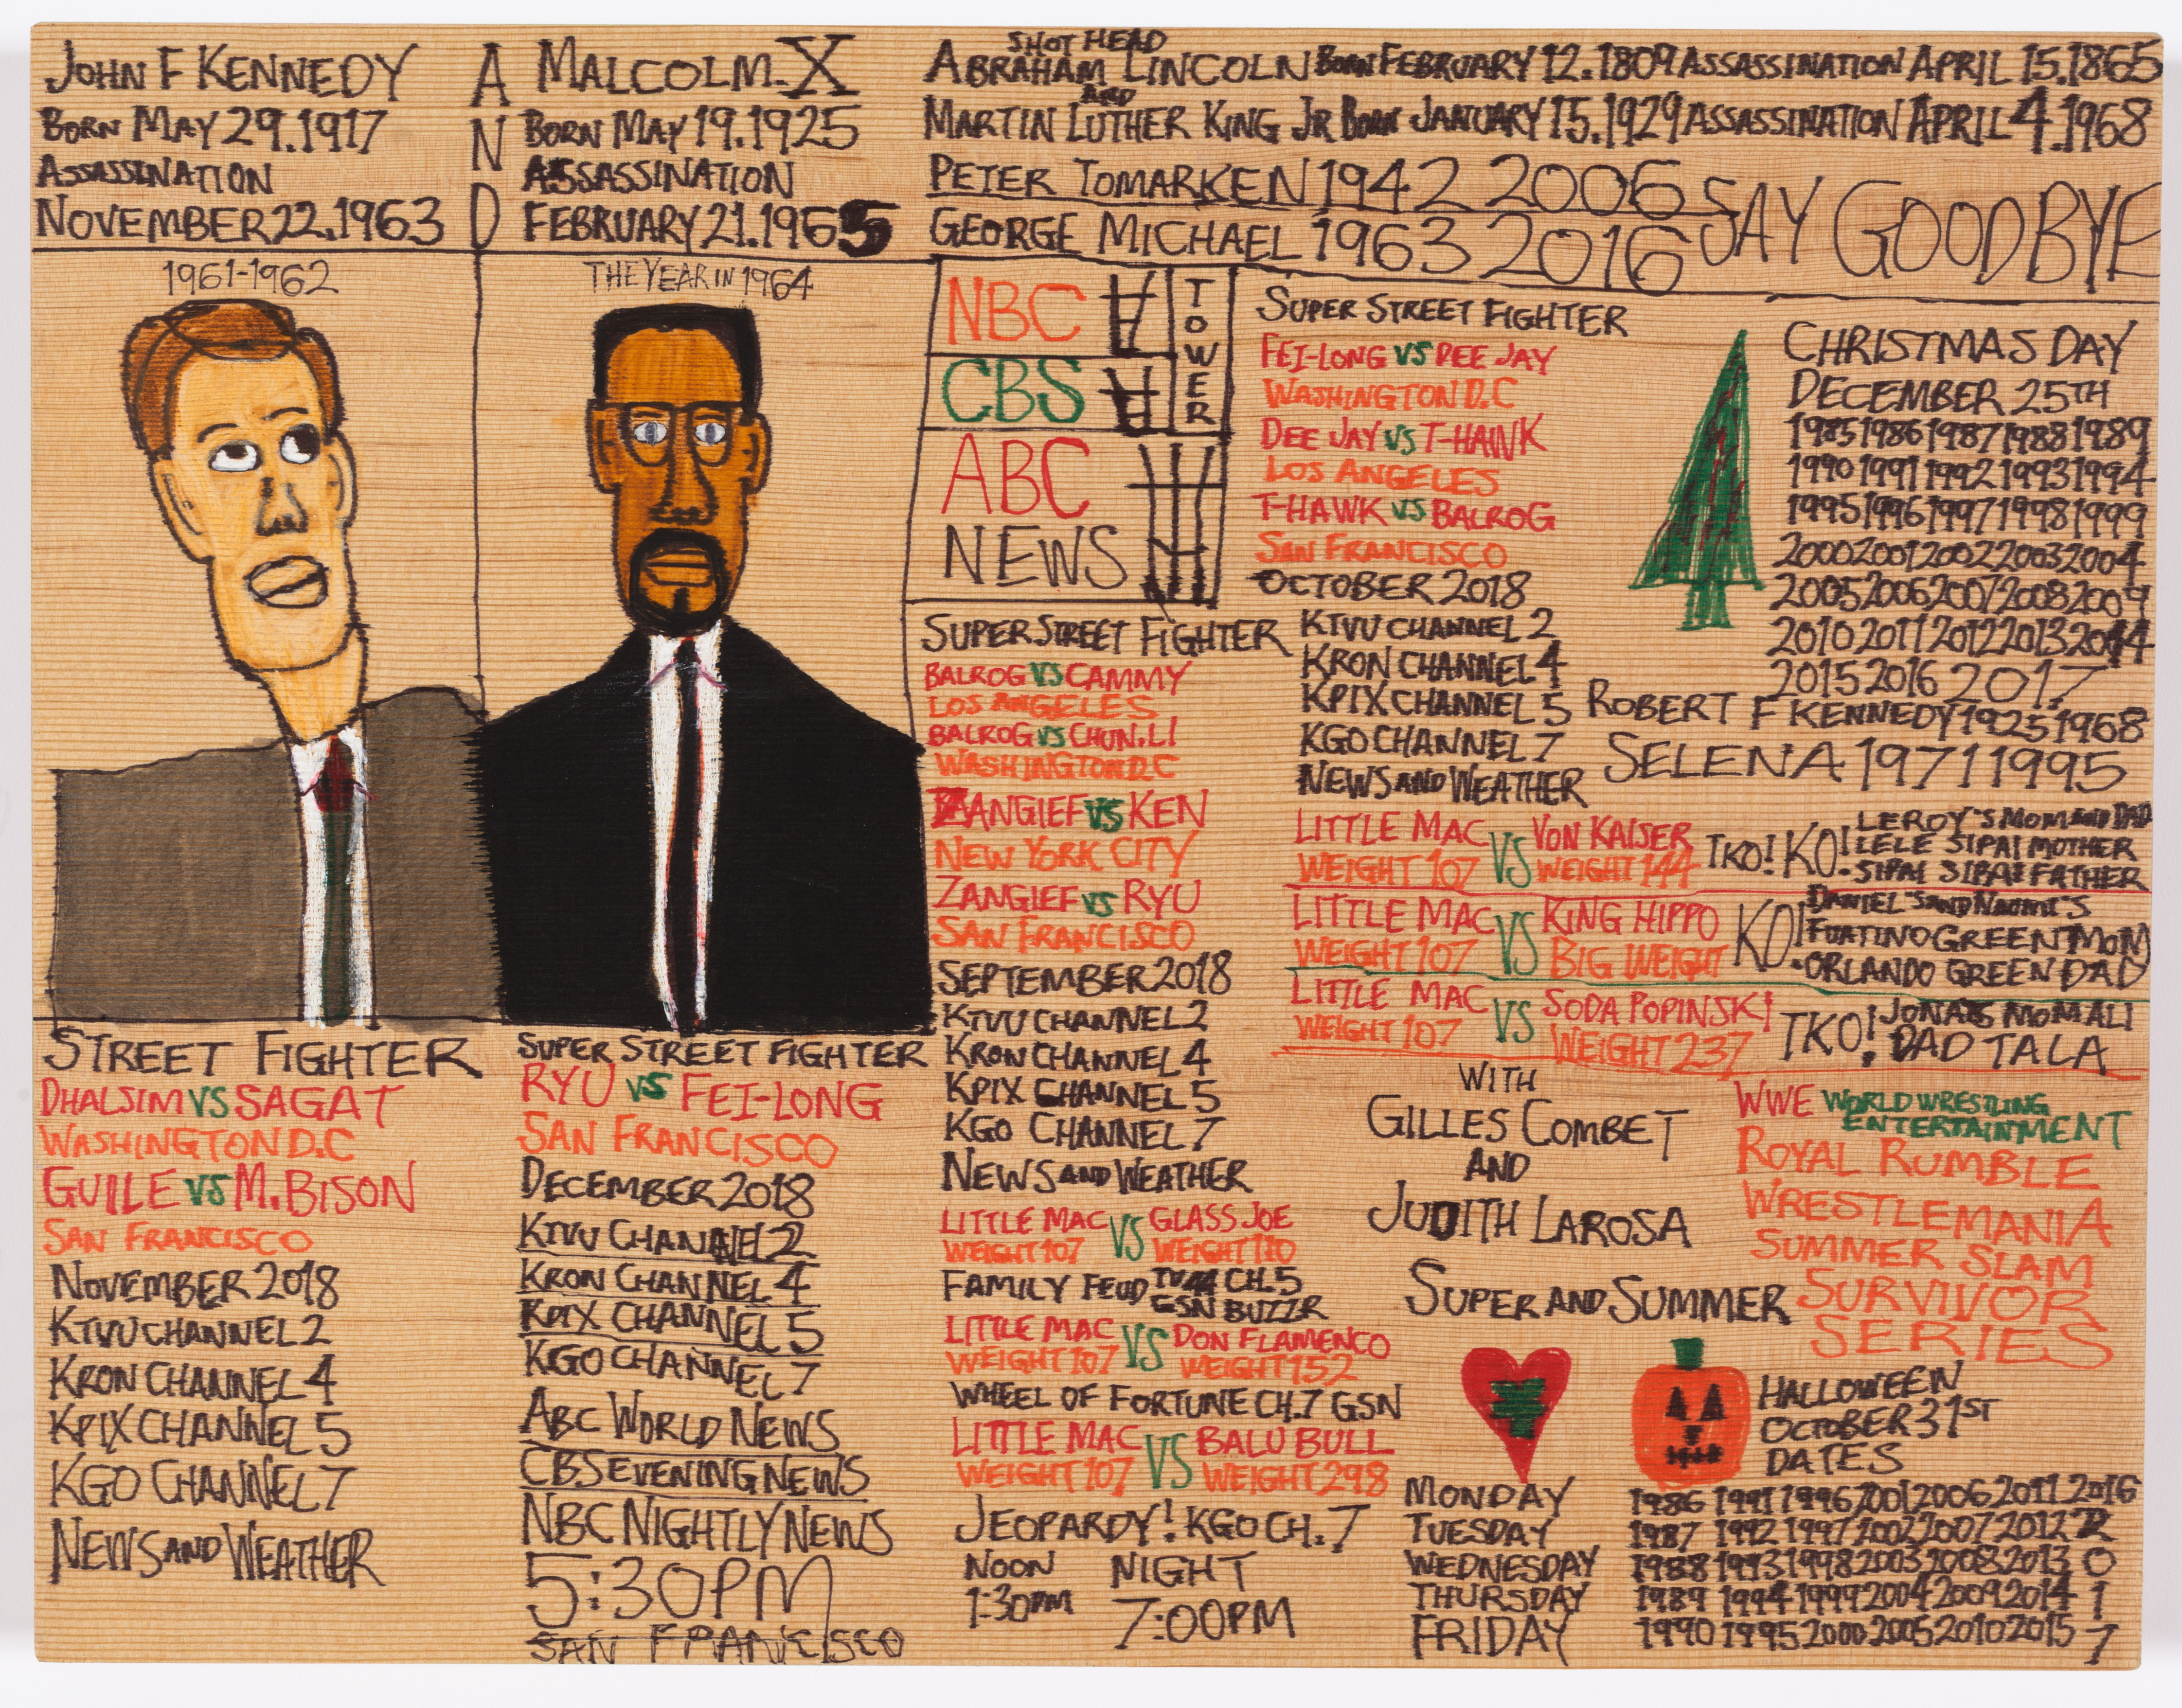 JOHN F KENNEDY
BORN MAY 29.1917
ASSASSINATION
NOVEMBER 22.1963
AND
MALCOLM-X
BORN MAY 19.1925
ASSASSINATION
FEBRUARY 21.1965
SHOT HEAD
ABRAHAM LINCOLN BORN FEBRUARY 12.1809 ASSASSINATION APRIL 15.1865
AND
MARTIN LUTHER KING JR BORN JANUARY 15.1929 ASSASSINATION APRIL 4.1968
PETER TOMARKEN 1942 2006
GEORGE MICHAEL 1963 2016
SAY GOODBYE
1961-1962
THE YEAR IN 1964
STREET FIGHTER
DHALSIM VS SAGAT
WASHINGTON D.C
GUILE VS M.BISON
SAN FRANCISCO
NOVEMBER 2018
KTVU CHANNEL 2
KRON CHANNEL 4
KPIX CHANNEL 5
KGO CHANNEL 7
NEWS AND WEATHER
SUPER STREET FIGHTER
RYU VS FEI-LONG
SAN FRANCISCO
DECEMBER 2018
KTVU CHANNEL 2
KRON CHANNEL 4
KPIX CHANNEL 5
KGO CHANNEL 7
ABC WORLD NEWS
CBS EVENING NEWS
NBC NIGHTLY NEWS
5:30PM
SAN FRANCISCO
NBC
CBS
ABC
NEWS
TOWER
SUPER STREET FIGHTER
BALROG VS CAMMY
LOS ANGELES
BALROG VS CHUN.LI
WASHINGTON D.C
ZANGIEF VS KEN
NEW YORK CITY
ZANGIEF VS RYU
SAN FRANCISCO
SEPTEMBER 2018
KTVU CHANNEL 2
KRON CHANNEL 4
KPIX CHANNEL 5
KGO CHANNEL 7
NEWS AND WEATHER
LITTLE MAC VS GLASS JOE
WEIGHT 107 WEIGHT 110
FAMILY FEUD TV44 CH.5
GSN BUZZR
LITTLE MAC VS DON FLAMENCO
WEIGHT 107 WEIGHT 152
WHEEL OF FORTUNE CH.7 GSN
LITTLE MAC VS BALU BULL
WEIGHT 107 WEIGHT 298
JEOPARDY! KGO CH.7
NOON NIGHT
1:30PM 7:00PM
SUPER STREET FIGHTER
FEI-LONG VS DEE JAY
WASHINGTON D.C
DEE JAY VS T-HAWK
LOS ANGELES
T-HAWK VS BALROG
SAN FRANCISCO
OCTOBER 2018
KTVU CHANNEL 2
KRON CHANNEL 4
KPIX CHANNEL 5
KGO CHANNEL 7
NEWS AND WEATHER
CHRISTMAS DAY
DECEMBER 25TH
1985 1986 1987 1988 1989
1990 1991 1992 1993 1994
1995 1996 1997 1998 1999
2000 2001 2002 2003 2004
2005 2006 2007 2008 2009
2010 2011 2012 2013 2014
2015 2016 2017
ROBERT F KENNEDY 1925 1968
SELENA 1971 1995
LITTLE MAC VS VON KAISER TKO! KO!
WEIGHT 107 WEIGHT 144
LEROY'S MOM AND DAD
LELE SIPAI MOTHER
SIPAI SIPAI FATHER
LITTLE MAC VS KING HIPPO KO!
WEIGHT 107 BIG WEIGHT
DANIEL'S AND NAOMI'S
FUATINO GREEN MOM
ORLANDO GREEN DAD
LITTLE MAC VS SODA POPINSKI TKO!
WEIGHT 107 WEIGHT 237
JONAS MOM ALI
DAD TALA
WITH
GILLES COMBET
AND
JUDITH LAROSA
SUPER AND SUMMER
WWE WORLD WRESTLING
ENTERTAINMENT
ROYAL RUMBLE
WRESTLEMANIA
SUMMER SLAM
SURVIVOR
SERIES
MONDAY
TUESDAY
WEDNESDAY
THURSDAY
FRIDAY
HALLOWEEN
OCTOBER 31ST
DATES
1986 1991 1996 2001 2006 2011 2016
1987 1992 1997 2002 2007 2012 2
1988 1993 1998 2003 2008 2013 0
1989 1994 1999 2004 2009 2014 1
1990 1995 2000 2005 2010 2015 7